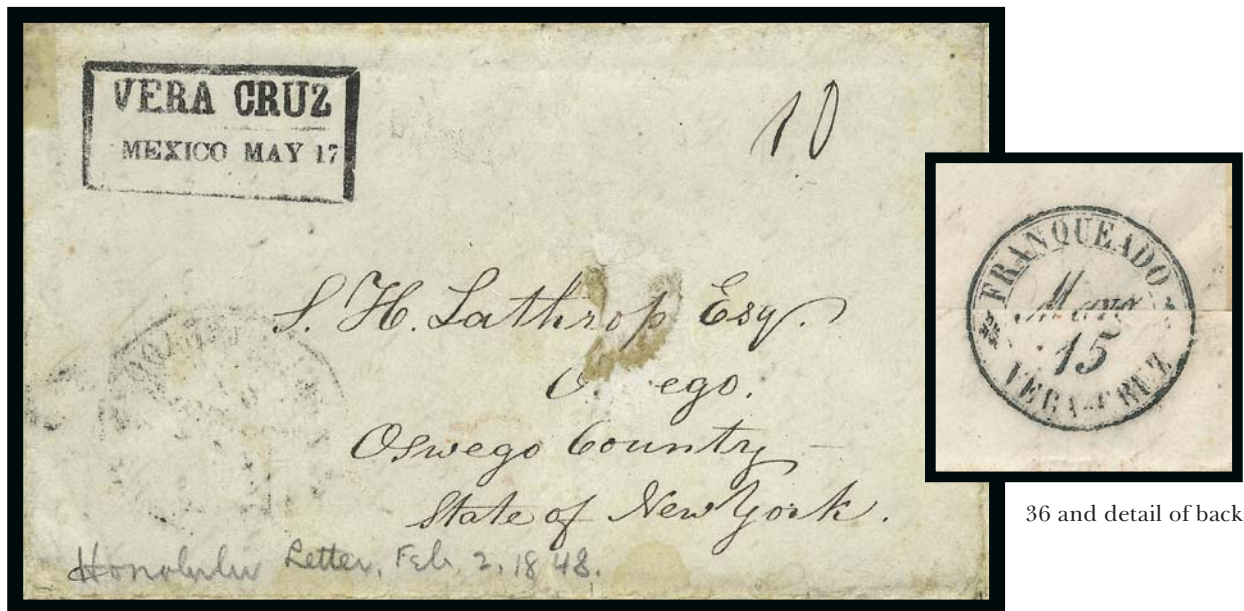 VERA CRUZ
MEXICO MAY 17
10
S. H. Lathrop Esq.
O ego.
Oswego County
State of New York.
Honolulu Letter, Feb. 2, 1848.
FRANQUEADO
Mayo
15
VERA-CRUZ
36 and detail of back